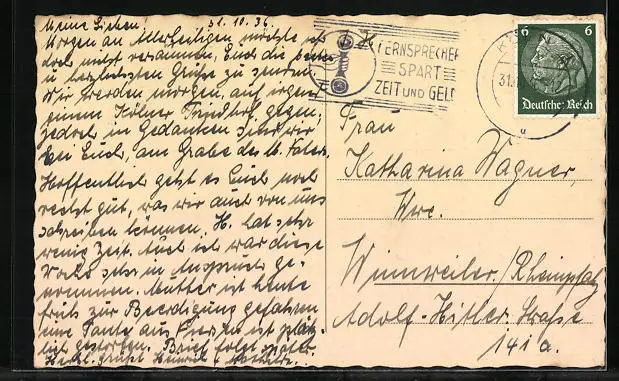 Meine Lieben! 31.10.36.
Morgen an Allerheiligen möchte ich
doch nicht versäumen, Euch die besten
u. herzlichsten Grüße zu senden.
Wir werden morgen, auf irgend
einem Kölner Friedhof gegen,
jedoch in Gedanken sind wir
bei Euch, am Grabe des lb. Vaters.
Hoffentlich geht es Euch noch
recht gut, was wir auch von uns
schreiben können. H. hat sehr
wenig Zeit. Auch ich war diese
Woche sehr in Anspruch ge-
nommen. Mutter ist heute
früh zur Beerdigung gefahren
eine Tante aus ist plötz-
lich gestorben. Brief folgt später.
Herzl. Grüße Heinrich u.
FERNSPRECHER
SPART
ZEIT UND GELD
6 6
Deutsches Reich
Frau
Katharina Wagner,
Wwe.
Winnweiler/Rheinpfalz
Adolf-Hitler-Straße
141a.